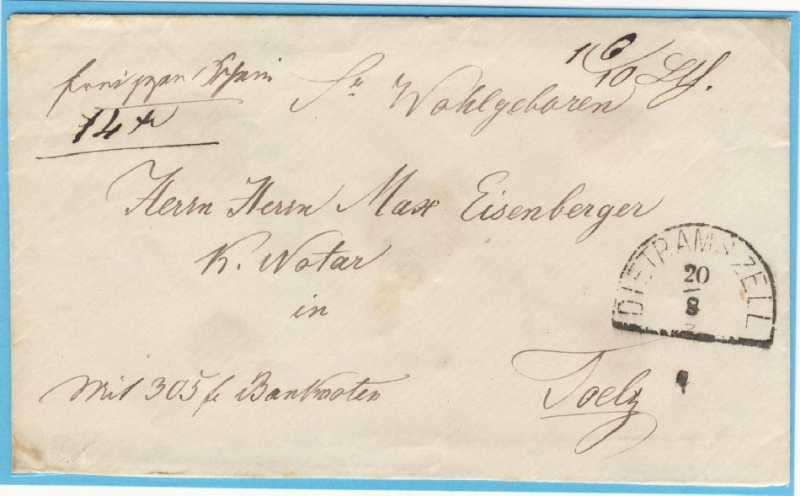 frei gegen Schein
14 x
1 6/10 Lth.
Sr Wohlgeboren
Herrn Herrn Max Eisenberger
K. Notar
in
Toelz
Mit 305 f. Banknoten
DIETRAMSZELL
20
8